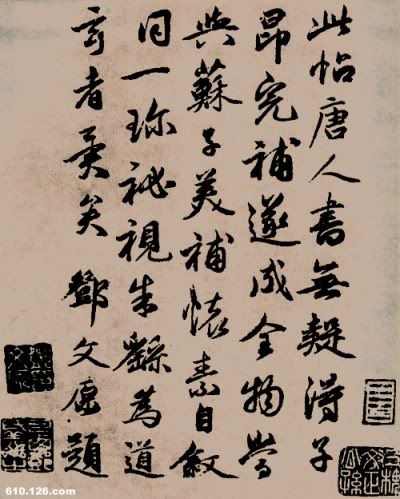 此帖唐人書無疑得子
昂完補遂成全物當
與蘇子美補懷素自敘
同一珍祕視朱繇為道
玄者異矣 鄧文原題
610.126.com